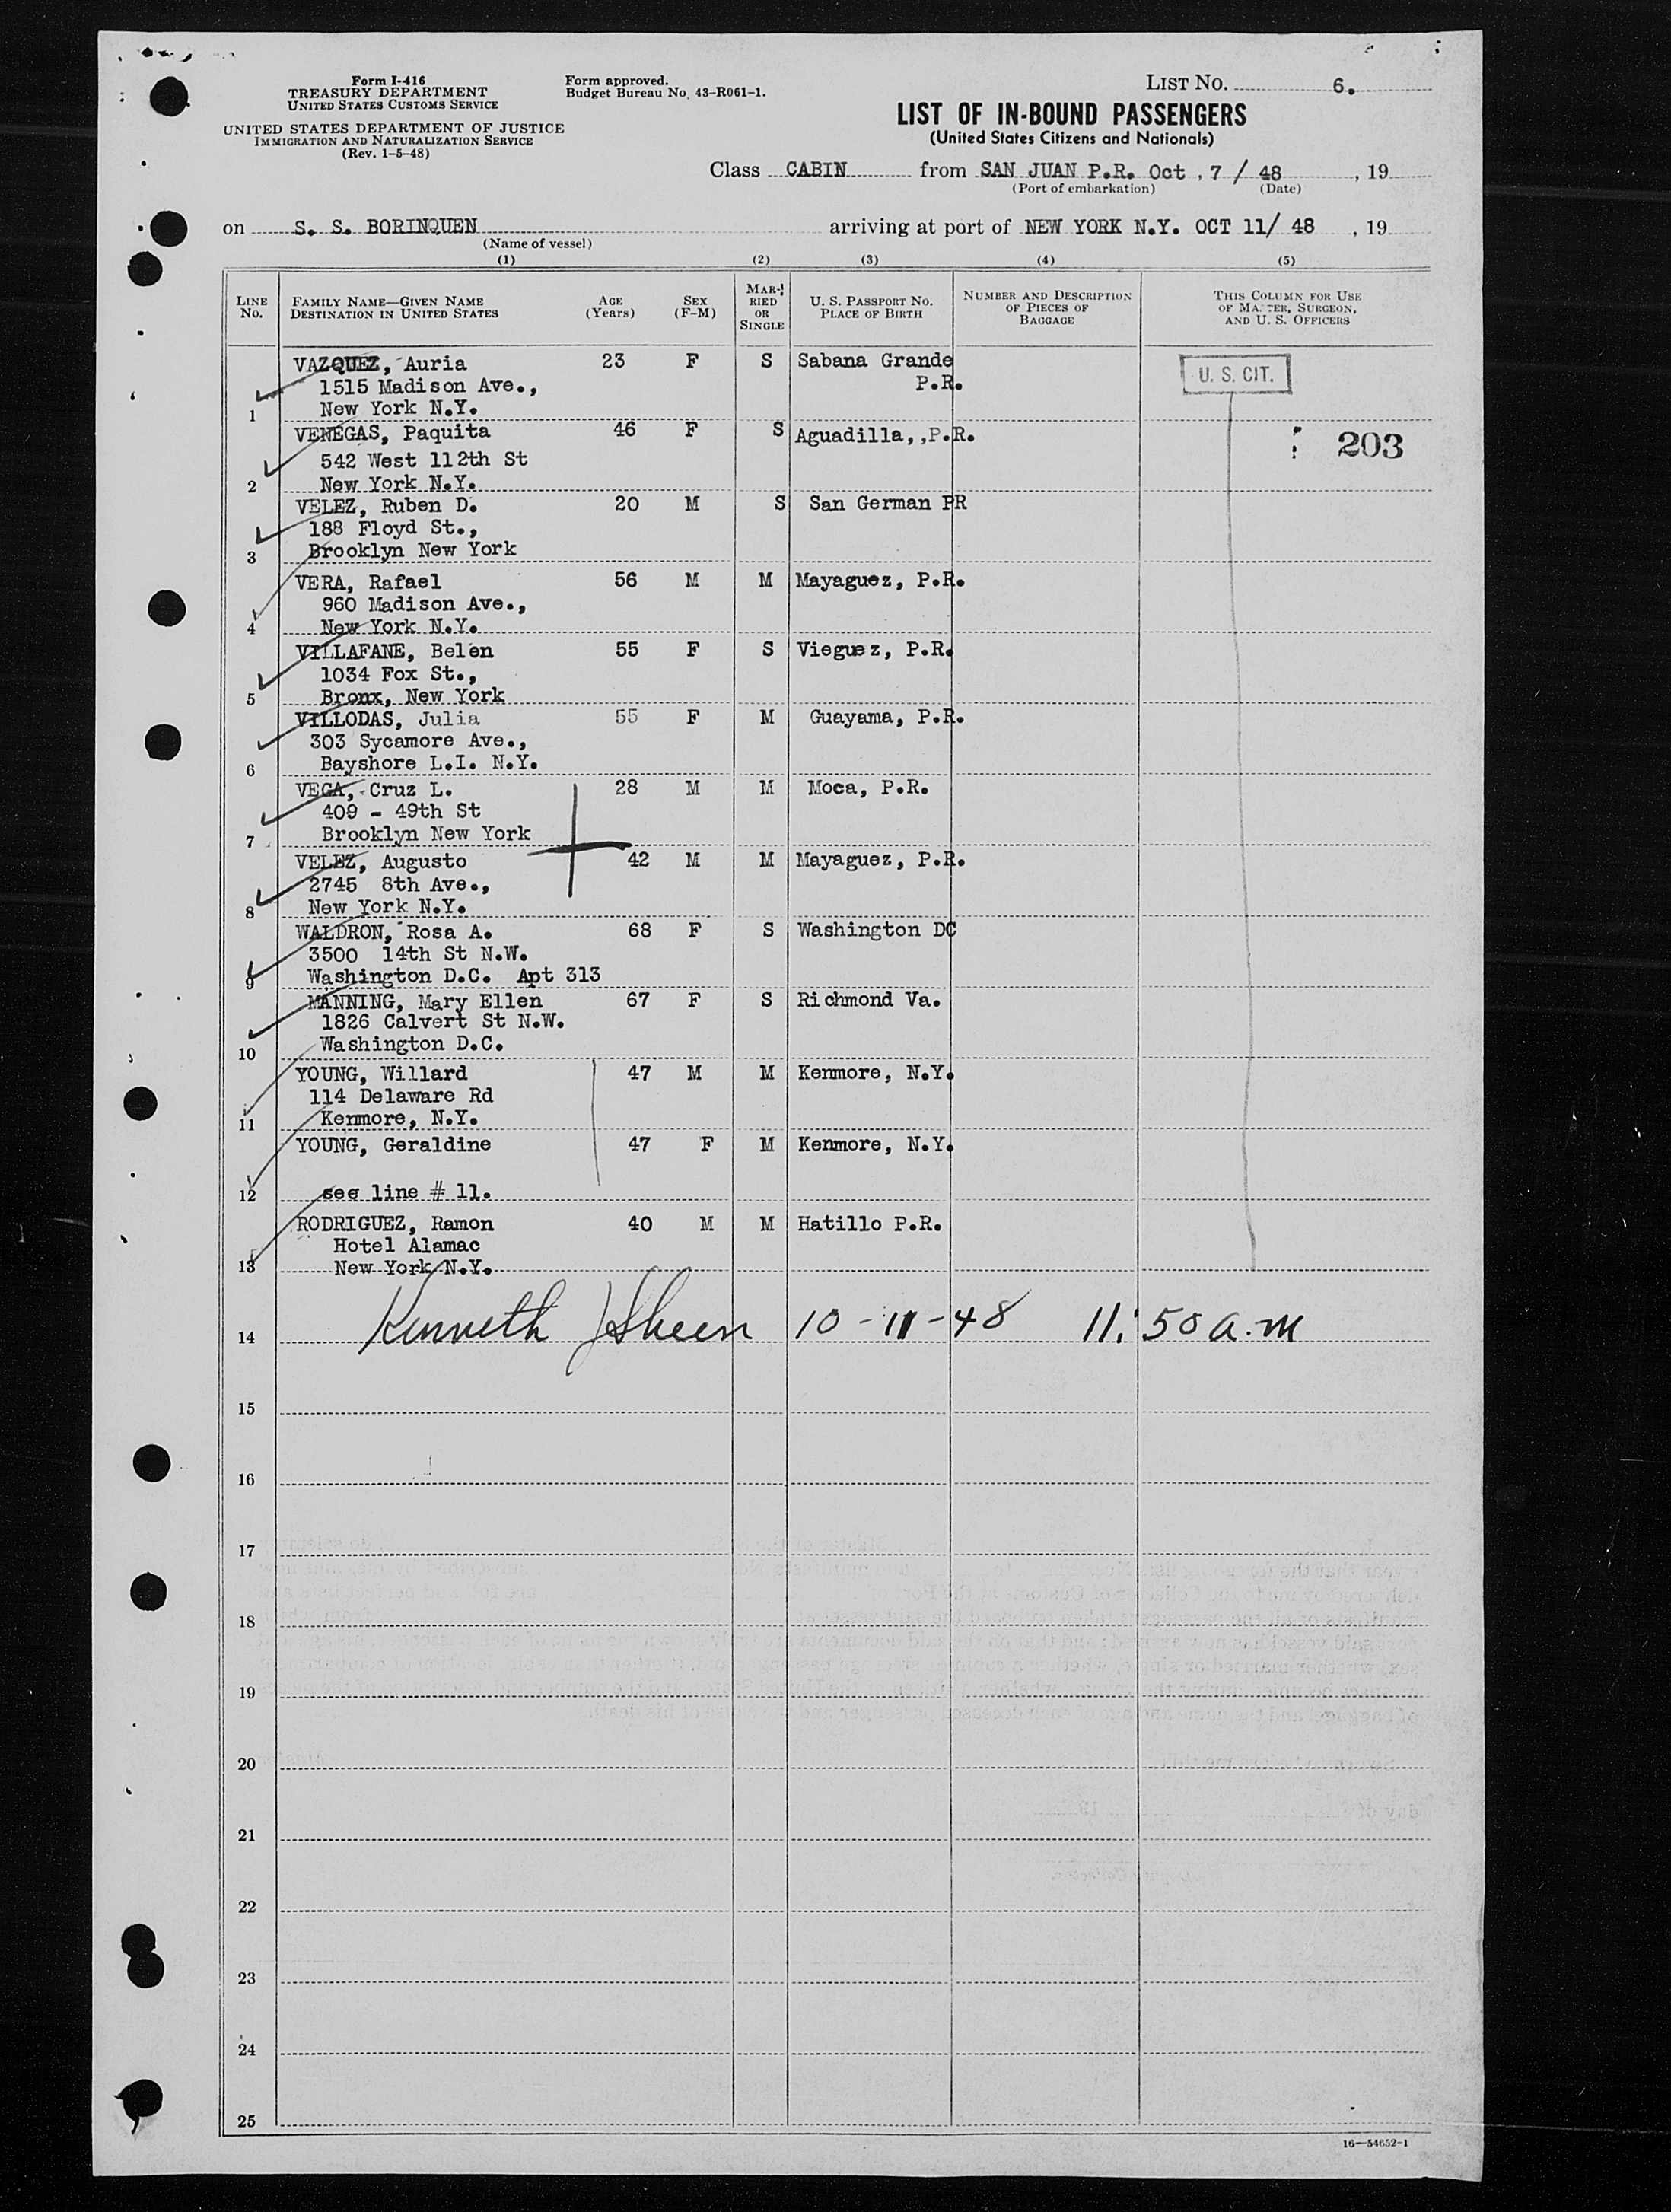 Form I-416
TREASURY DEPARTMENT
UNITED STATES CUSTOMS SERVICE
UNITED STATES DEPARTMENT OF JUSTICE
IMMIGRATION AND NATURALIZATION SERVICE
(Rev. 1-5-48)
Form approved.
Budget Bureau No. 43-R061-1.
LIST NO. 6.
LIST OF IN-BOUND PASSENGERS
(United States Citizens and Nationals)
Class CABIN from SAN JUAN P.R. Oct , 7 / 48 , 19
(Port of embarkation) (Date)
on S. S. BORINQUEN arriving at port of NEW YORK N.Y. OCT 11/ 48 , 19
(Name of vessel)
(1) (2) (3) (4) (5)
LINE No. FAMILY NAME—GIVEN NAME DESTINATION IN UNITED STATES AGE (Years) SEX (F-M) MARRIED OR SINGLE U. S. PASSPORT NO. PLACE OF BIRTH NUMBER AND DESCRIPTION OF PIECES OF BAGGAGE THIS COLUMN FOR USE OF MASTER, SURGEON, AND U. S. OFFICERS
VAZQUEZ, Auria 23 F S Sabana Grande U. S. CIT.
1515 Madison Ave., P.R.
1 New York N.Y.
VENEGAS, Paquita 46 F S Aguadilla,,P.R. 203
542 West 112th St
2 New York N.Y.
VELEZ, Ruben D. 20 M S San German PR
188 Floyd St.,
3 Brooklyn New York
VERA, Rafael 56 M M Mayaguez, P.R.
960 Madison Ave.,
4 New York N.Y.
VILLAFANE, Belen 55 F S Vieguez, P.R.
1034 Fox St.,
5 Bronx, New York
VILLODAS, Julia 55 F M Guayama, P.R.
303 Sycamore Ave.,
6 Bayshore L.I. N.Y.
VEGA, Cruz L. 28 M M Moca, P.R.
409 - 49th St
7 Brooklyn New York
VELEZ, Augusto 42 M M Mayaguez, P.R.
2745 8th Ave.,
8 New York N.Y.
WALDRON, Rosa A. 68 F S Washington DC
3500 14th St N.W.
9 Washington D.C. Apt 313
MANNING, Mary Ellen 67 F S Richmond Va.
1826 Calvert St N.W.
10 Washington D.C.
YOUNG, Willard 47 M M Kenmore, N.Y.
114 Delaware Rd
11 Kenmore, N.Y.
YOUNG, Geraldine 47 F M Kenmore, N.Y.
12 see line # 11.
RODRIGUEZ, Ramon 40 M M Hatillo P.R.
Hotel Alamac
13 New York N.Y.
14 Kenneth J Sheen 10-11-48 11:50 a.m
15
16
17
18
19
20
21
22
23
24
25
16—54652-1